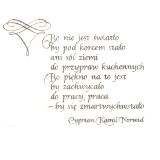 Bo nie jest światło
by pod korcem stało
ani sól ziemi
do przypraw kuchennych
Bo piękno na to jest
by zachwycało
do pracy, praca
– by się zmartwychwstało
Cyprian Kamil Norwid